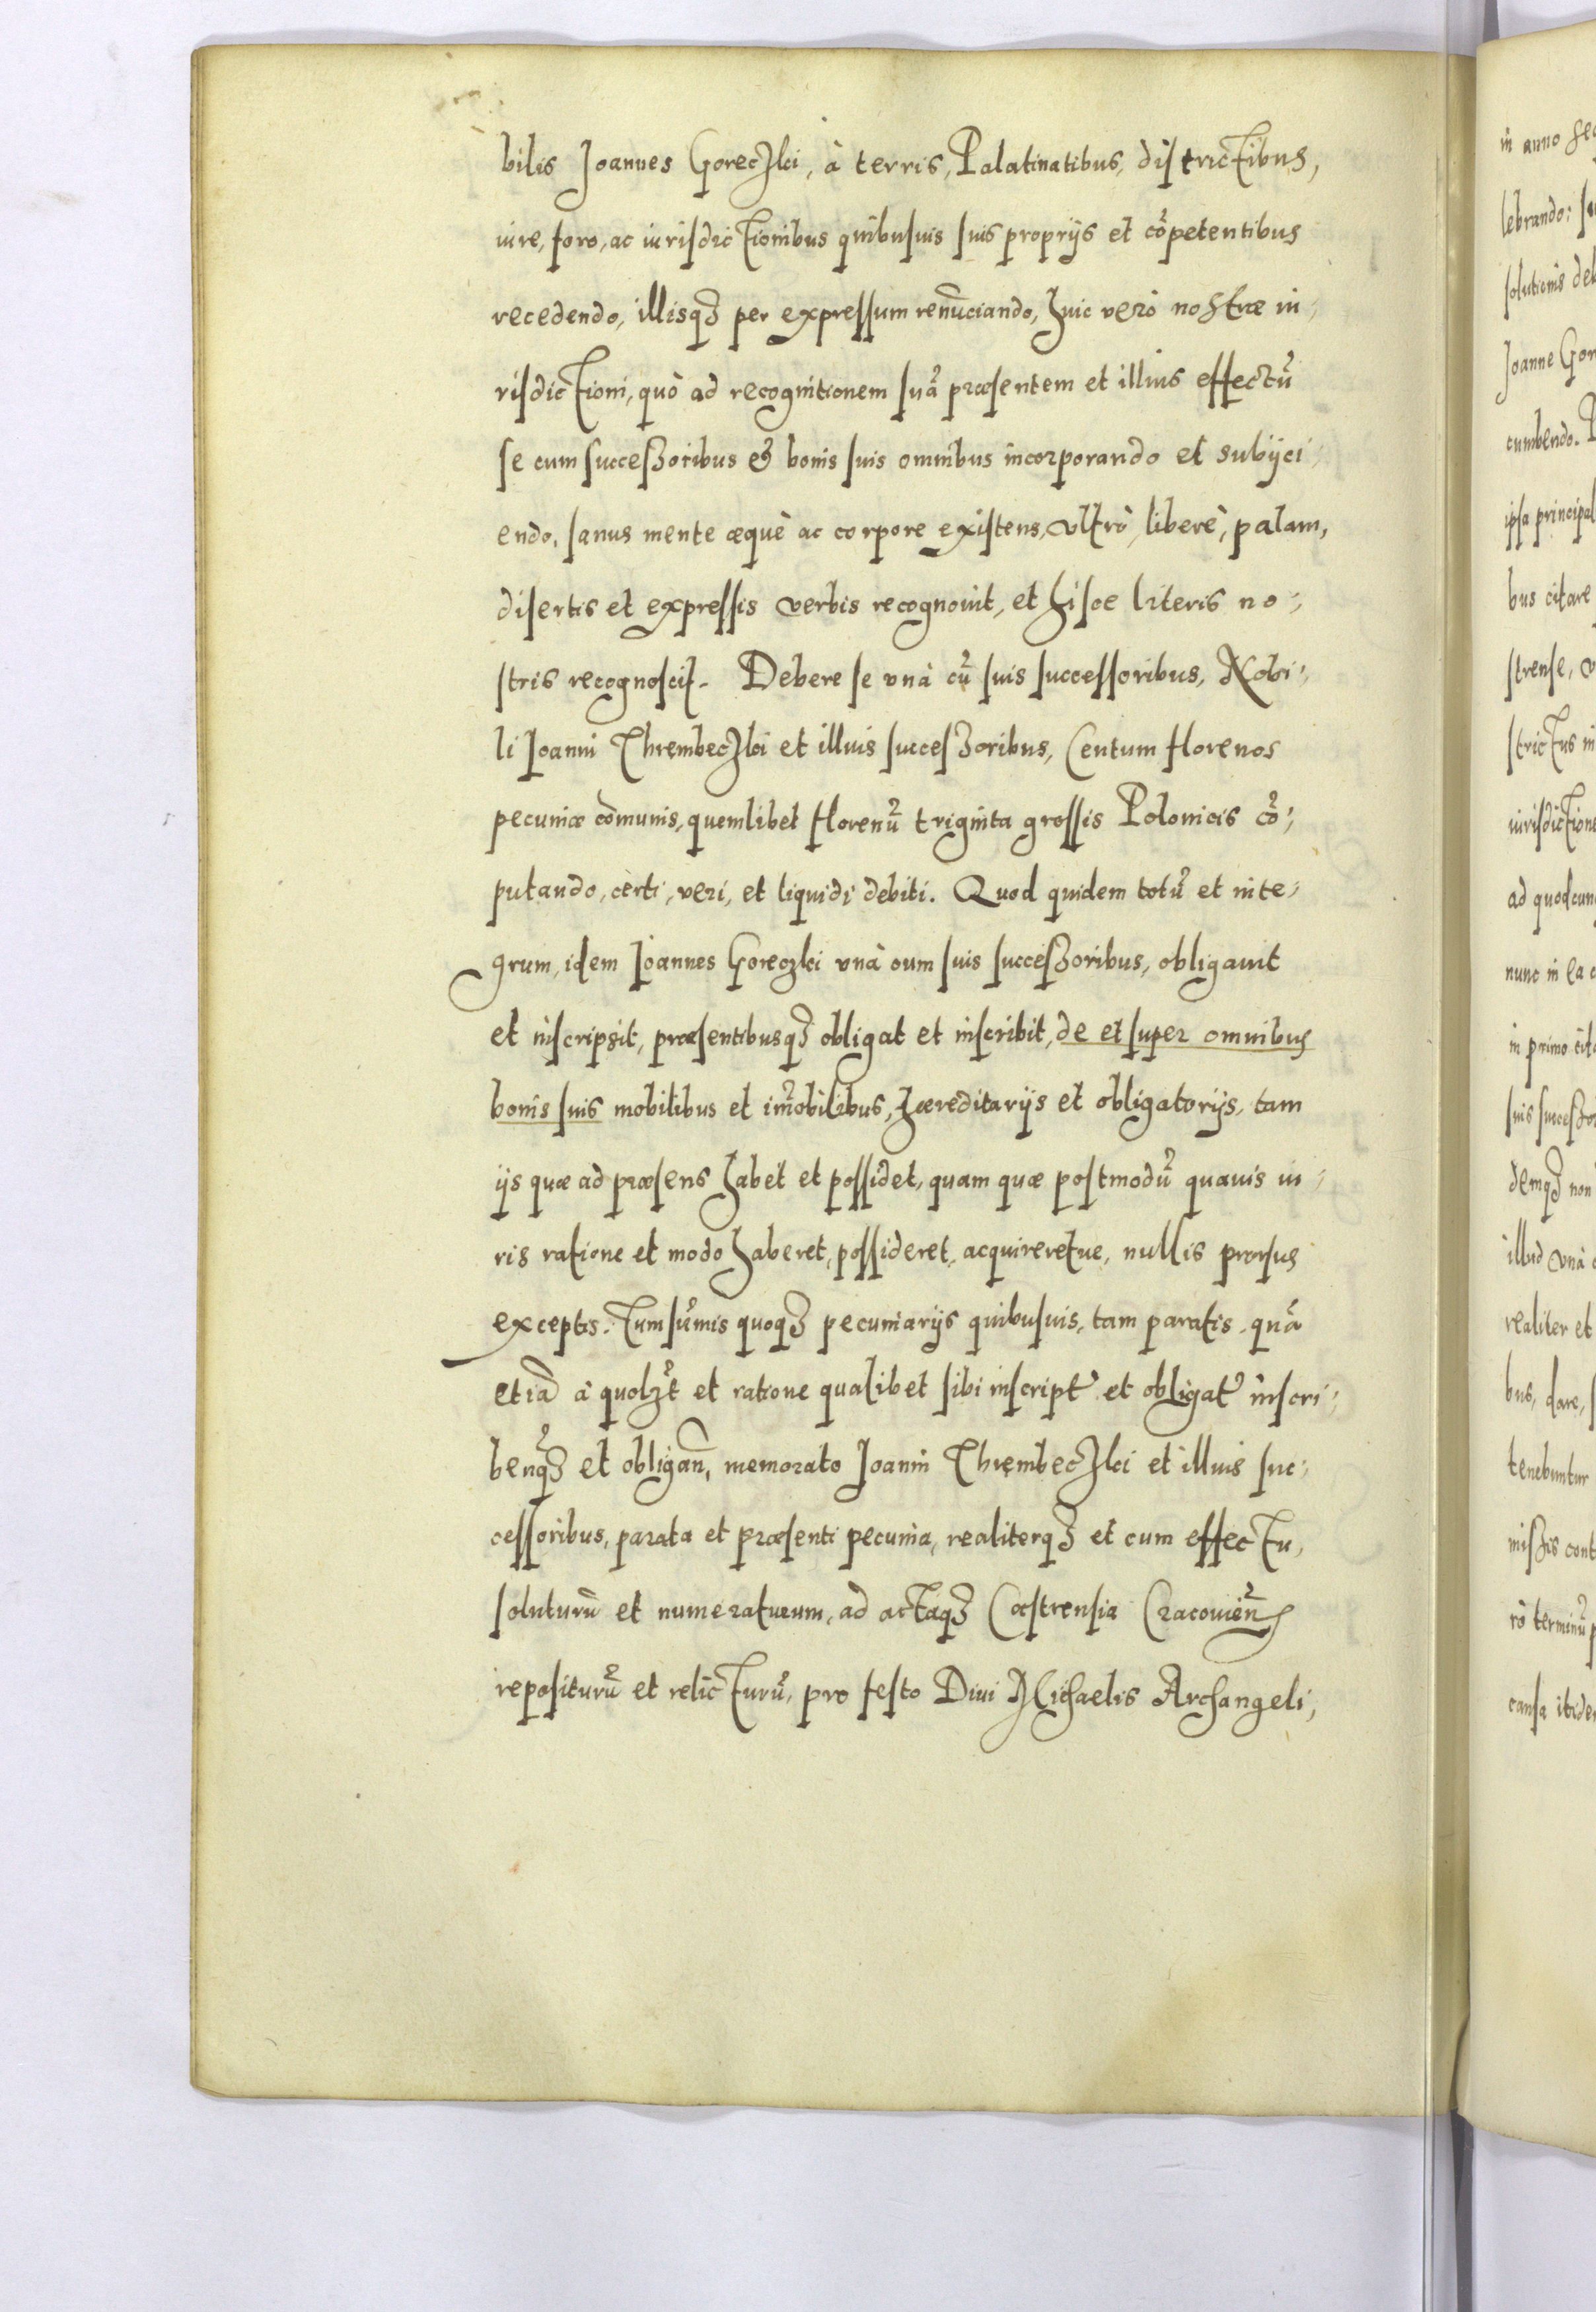 bilis Joannes Goreczki, à terris, Palatinatibus, districtibus,
iure, foro, ac iurisdictionibus quibusuis suis proprijs et cõpetentibus
recedendo, illisqꝫ per expressum renũciando, huic verò nostræ iu-
risdictioni, quò ad recognitionem suã præsentem et illius effectũ
se cum successoribus et bonis suis omnibus incorporando et subijci-
endo, sanus mente æquè ac corpore existens, vltrò, liberè, palam,
disertis et expressis verbis recognouit, et hisce literis no-
stris recognoscit. Debere se vnà cũ suis successoribus, Nobi-
li Joanni Thrembeczki et illius successoribus, Centum florenos
pecuniæ cõmunis, quemlibet florenũ triginta grossis Polonicis cõ-
putando, certi, veri, et liquidi debiti. Quod quidem totũ et inte-
grum, idem Joannes Goreczki vnà cum suis successoribus, obligauit
et inscripsit, præsentibusqꝫ obligat et inscribit, de et super omnibus
bonis suis mobilibus et im̃obilibus, hæreditarijs et obligatorijs, tam
ijs quæ ad præsens habet et possidet, quam quæ postmodũ quauis iu-
ris ratione et modo haberet, possideret, acquireretue, nullis prorsus
exceptis. Tum sum̃is quoqꝫ pecuniarijs quibusuis, tam paratis, quã
etiã à quolzt et ratione qualibet sibi inscript et obligat inscri-
benqꝫ et obligan̄, memorato Joanni Thrembeczki et illius suc-
cessoribus, parata et præsenti pecunia, realiterqꝫ et cum effectu,
soluturũ et numeraturum, ad actaqꝫ Castrensia Cracouień
repositurũ et relicturũ, pro festo Diui Michaelis Archangeli,
in anno
lebrando:
solutionis
Joanne
cumbendo.
ipsa
bus citare
strense,
strictus
ad
nunc in ea
in primo
suis
demqꝫ non
illud vnà
realiter et
bus, dare,
tenebuntur
rò terminũ
causa